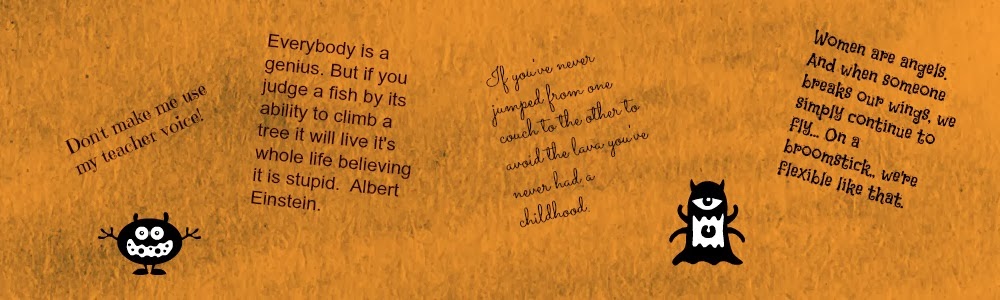 Don't make me use
my teacher voice!
Everybody is a
genius. But if you
judge a fish by its
ability to climb a
tree it will live it's
whole life believing
it is stupid. Albert
Einstein.
If you've never
jumped from one
couch to the other to
avoid the lava you've
never had a
childhood.
Women are angels.
And when someone
breaks our wings, we
simply continue to
fly... On a
broomstick.. we're
flexible like that.